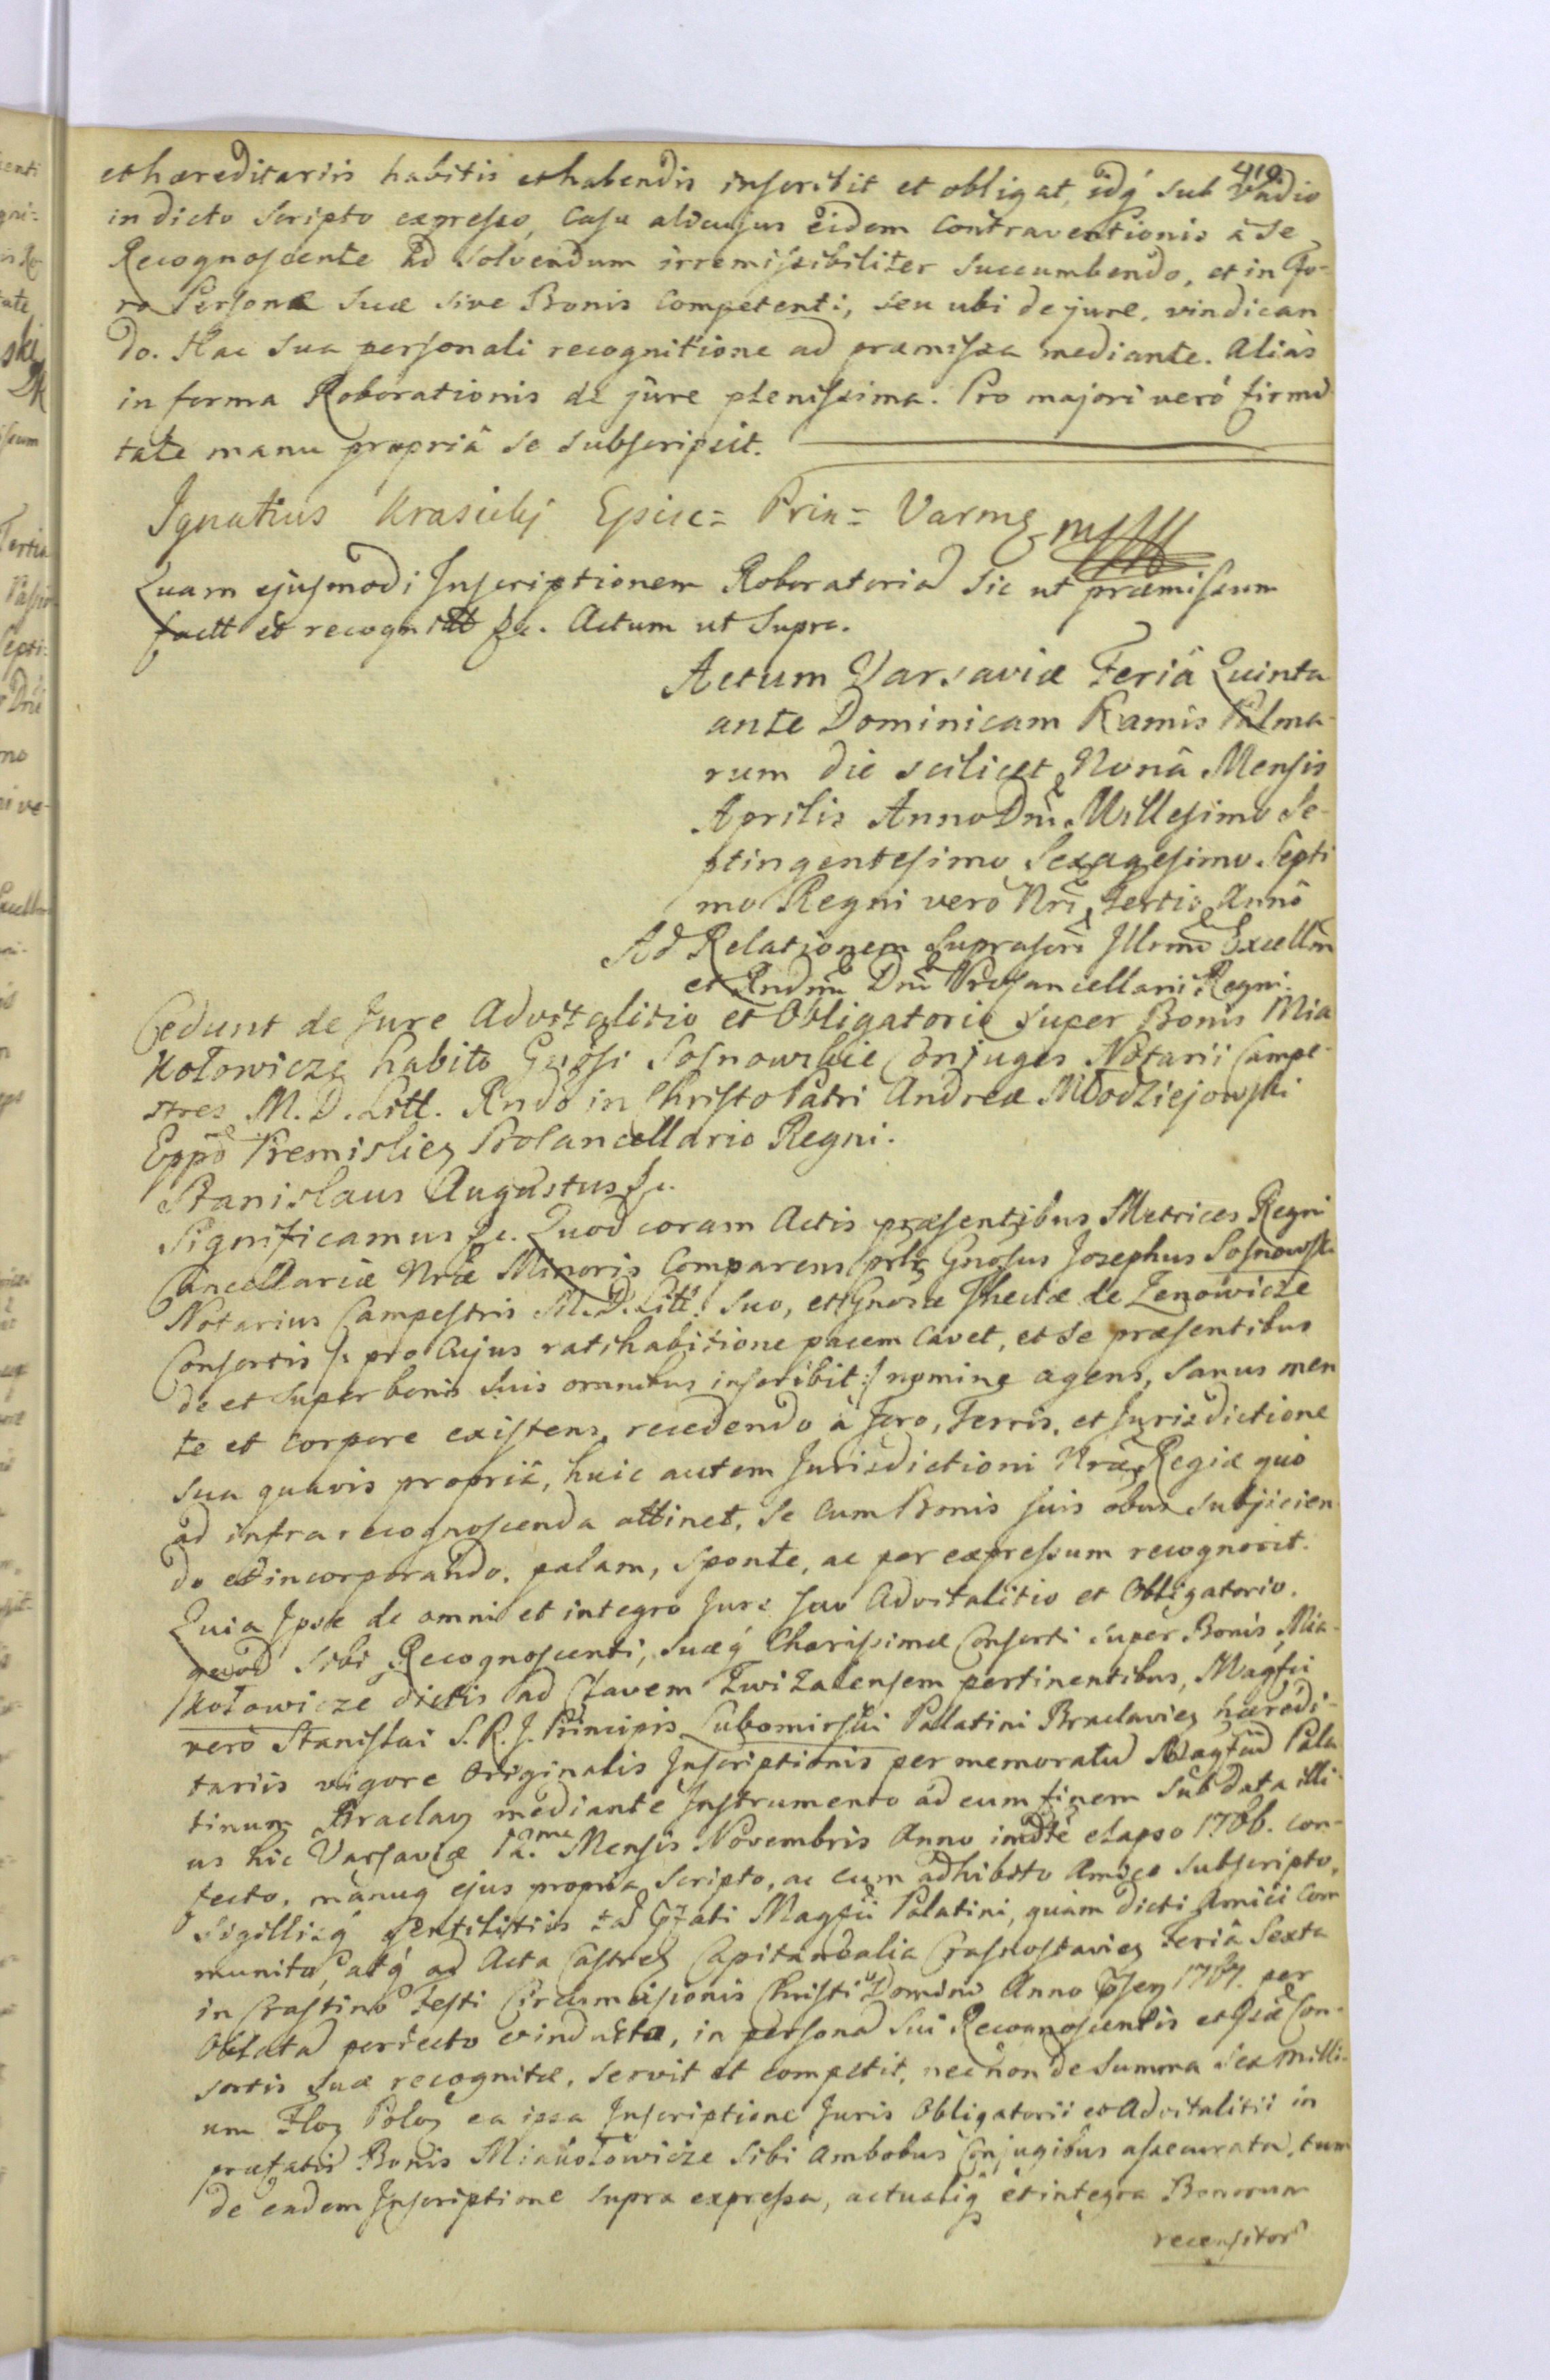 419.
et haereditariis habitis et habendis inscribit et obligat, idq́ sub Vadio
in dicto Scripto expresso, Casu alicujus eidem Contraventionis â Se
Recognoscente ad solvendum irremissibiliter succumbendo, et in Fo-
ro Personæ Suæ sive Bonis Competenti, seu ubi de jure, vindican
do. Hac Sua personali recognitione ad præmissa mediante. Alias
in forma Roborationis de jure plenissima. Pro majori veró firmi
tate manu propriâ Se Subscripsit.
Ignatius Krasicki Episc= Prin= Varm mp
Quam ejusmodi Inscriptionem Roboratoriã Sic ut præmissum
facit et recognit &c. Actum ut Supra.
Actum Varsaviæ Feriâ Quinta
ante Dominicam Ramis Palma-
rum die scilicet Nonâ Mensis
Aprilis Anno Dni Millesimo Se-
ptingentesimo Sexagesimo Septi
mo Regni veró Nri Tertio Anno
Ad Relationem Suprascri Illrmi Excellmi
et Rndmi Dni ProCancellarii Regni.
Cedunt de Jure Advitalitio et Obligatorio Super Bonis Mia
kołowicze habito Gnosi Sosnowskie Conjuges Notarii Campe-
stres M. D. Litt. Rndo in Christo Patri Andreæ Młodziejowski
Eppo Premislien ProCancellario Regni.
Stanislaus Augustus &c.
Significamus &c. Quod coram Actis præsentibus Metrices Regni
Cancellariæ Nræ Minoris Comparens prlr Gnosus Josephus Sosnowski
Notarius Campestris M. D. Litt. Suo, et Gnosæ Theclæ de Zenowicze
Consortis /: pro Cujus ratihabitione pacem Cavet, et Se præsentibus
de et Super bonis Suis omnibus inscribit :/ nomine agens, Sanus men
te et Corpore existens, recedendo à Foro, Terris, et Jurisdictione
Sua quavis propriâ, huic autem Jurisdictioni Nræ Regiæ quò
ad infra recognoscenda attinet, Se Cum Bonis Suis obus Subjicien
do et incorporando, palam, Sponte, ac per expressum recognovit.
Quia Ipse de omni et integro Jure Suo Advitalitio et Obligatorio.
quod Sibi Recognoscenti, Suæq́ Charissimæ Consorti Super Bonis Mia-
kołowicze dictis ad Clavem Zwizalensem pertinentibus, Magfci
veró Stanislai S. R. J. Principis Lubomirski Palatini Braclavien hæredi-
tariis vigore Originalis Inscriptionis per memoratũ Magfcũ Pala
tinum Braclav mediante Instrumento ad eum finem Sub data illi
us hic Varsaviæ 12.ma Mensis Novembris Anno imdte elapso 1766. con-
fecto, manuq́ ejus propria Scripto, ac cum adhibito Amico Subscripto,
Sigillisq́ Gentilitiis tã Præfati Magfci Palatini, quàm dicti Amici Com
munito, atq́ ad Acta Castren Capitanealia Crasnostavien Feriâ Sexta
in Crastino Festi Circumcisionis Christi Domini Anno præsen 1767. per
Oblatã porrecto et inducto, in personã Sui Recognoscentis et Gsæ Con-
sortis Suæ recognitæ, Servit et competit, nec non de Summa Sex milli-
um Flor Polon ea ipsa Inscriptione Juris Obligatorii et Advitalitii in
præfatis Bonis Miakołowicze Sibi Ambobus Conjugibus assecurata, tum
de eadem Inscriptione Supra expressa, actualiq́ et integra Bonorum
recensitor